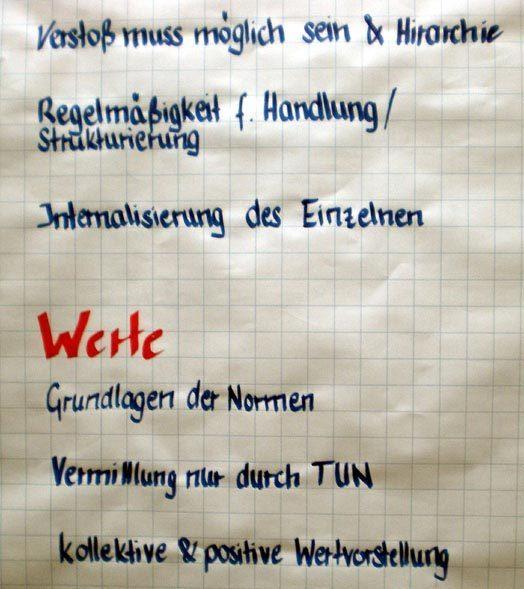 Verstoß muss möglich sein & Hirarchie
Regelmäßigkeit f. Handlung/
Strukturierung
Internalisierung des Einzelnen
Werte
Grundlagen der Normen
Vermittlung nur durch TUN
kollektive & positive Wertvorstellung